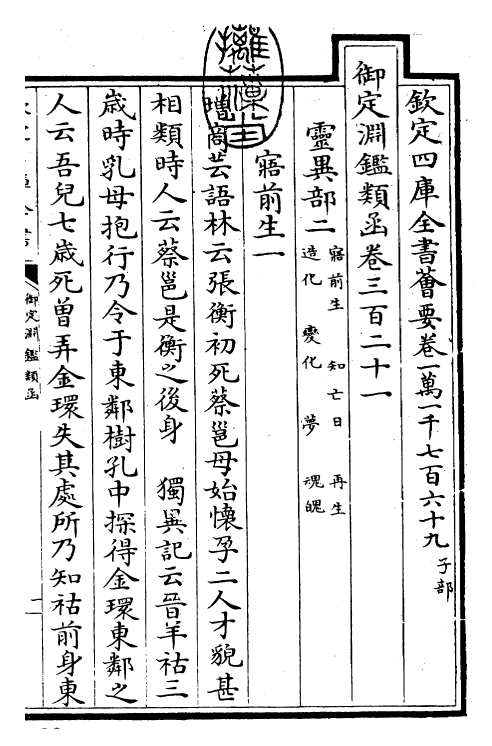 欽定四庫全書薈要卷一萬一千七百六十九 子部
御定淵鑑類函卷三百二十一
靈異部二 寤前生 知亡日 再生
造化 變化 夢 魂魄
寤前生一
增商芸語林云張衡初死蔡邕母始懷孕二人才貌甚
相類時人云蔡邕是衡之後身 獨異記云晉羊祜三
歲時乳母抱行乃令于東鄰樹孔中探得金環東鄰之
人云吾兒七歲死曾弄金環失其處所乃知祜前身東
御定淵鑑類函